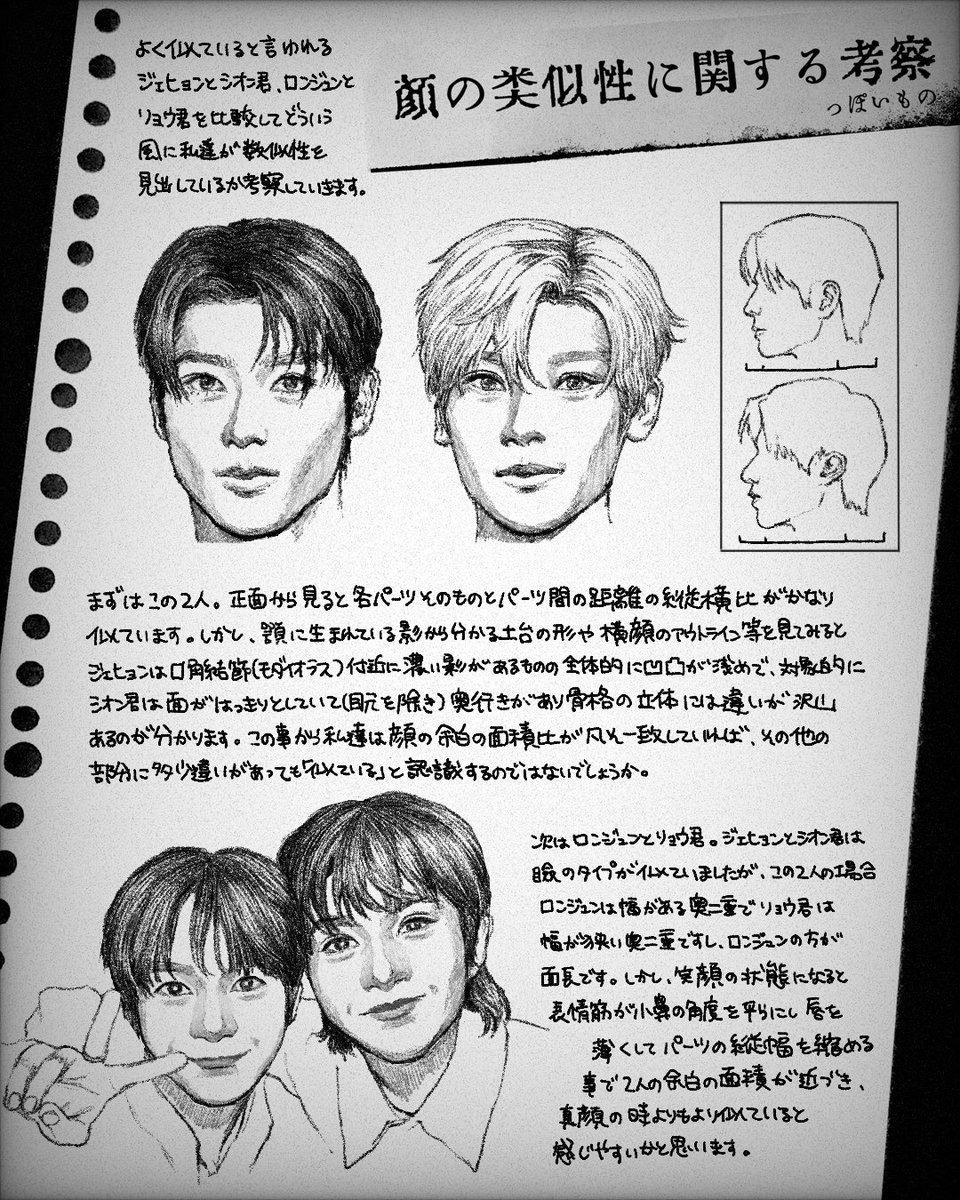 顔の類似性に関する考察
っぽいもの
よく似ていると言われる
ジェヒョンとシオン君、ロンジュンと
リョウ君を比較してどういう
風に私達が類似性を
見出しているか考察していきます。
まずはこの2人。正面から見ると各パーツそのものとパーツ間の距離の縦横比がかなり
似ています。しかし、顎に生まれている影から分かる土台の形や横顔のアウトライン等を見てみると
ジェヒョンは口角結節(モダイオラス)付近に濃い影があるものの全体的に凹凸が浅めで、対象的に
シオン君は面がはっきりとしていて(目元を除き)奥行きがあり骨格の立体には違いが沢山
あるのが分かります。この事から私達は顔の余白の面積比が凡そ一致していれば、その他の
部分に多少違いがあっても「似ている」と認識するのではないでしょうか。
次はロンジュンとリョウ君。ジェヒョンとシオン君は
瞼のタイプが似ていましたが、この2人の場合
ロンジュンは幅がある奥二重でリョウ君は
幅が狭い奥二重ですし、ロンジュンの方が
面長です。しかし、笑顔の状態になると
表情筋が小鼻の角度を平らにし唇を
薄くしてパーツの縦幅を縮める
事で2人の余白の面積が近づき、
真顔の時よりもより似ていると
感じやすいかと思います。